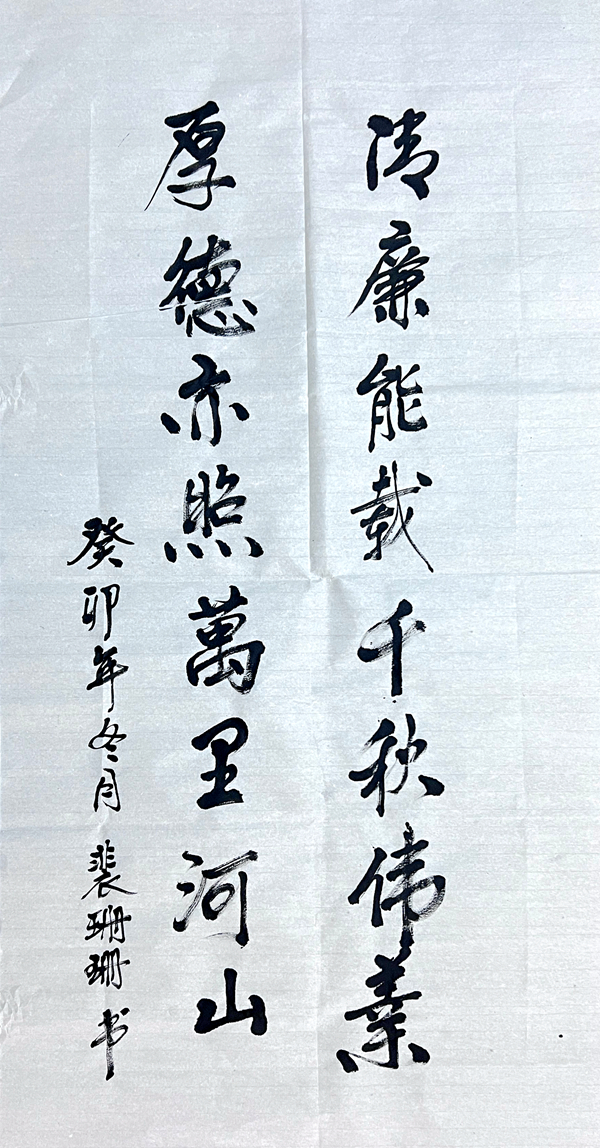 清廉能载千秋伟業
厚德亦照萬里河山
癸卯年冬月裴珊珊书